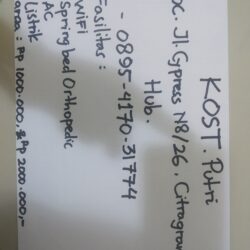 KOST. Putri
oc. Jl. Cypress N8/26, Citragran
Hub.
- 0895-4170-31774
Fasilitas :
WiFi
Spring bed Orthopedic
AC
Listrik
arga : Rp 1.000.000,- & Rp 2.000.000,-